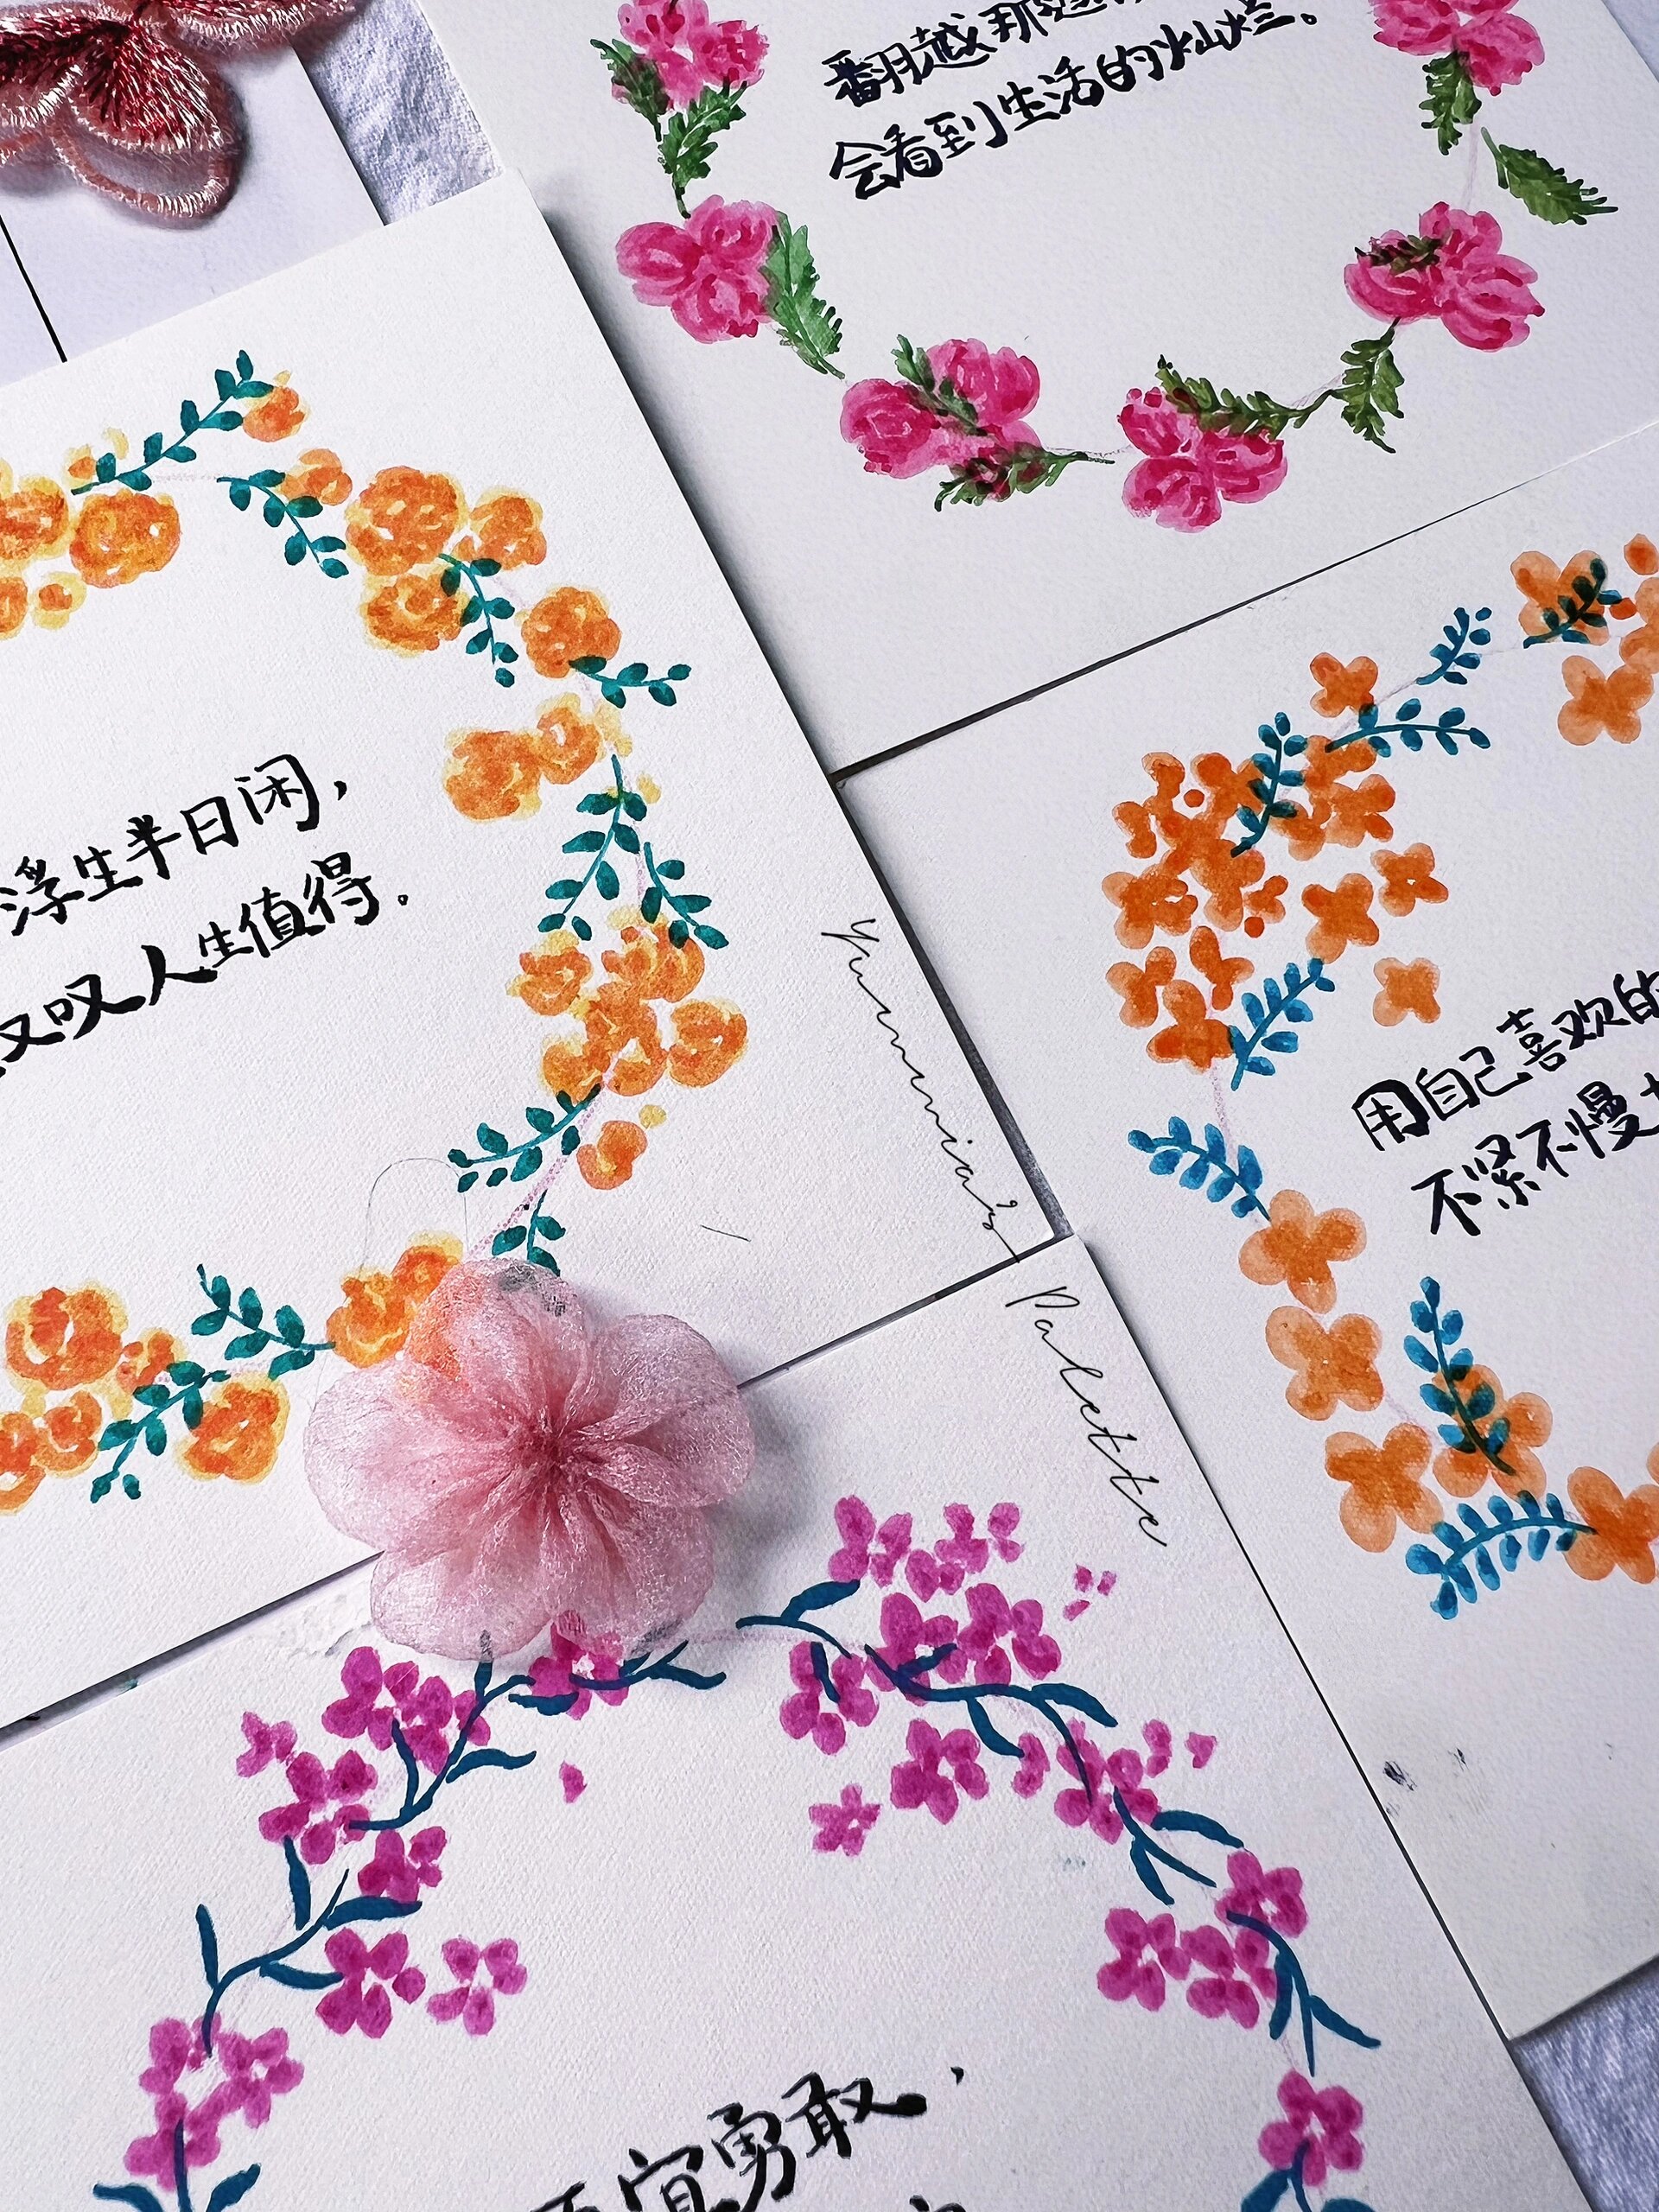 翻越那
会看到生活的灿烂。
浮生半日闲，
又叹人生值得.
用自己喜欢的
不紧不慢
Yummia's Palette
宜勇敢,